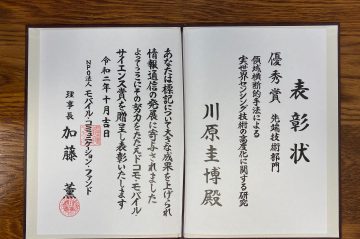 表彰状
優秀賞 先端技術部門
領域横断的手法による
実世界センシング技術の高度化に関する研究
川原圭博殿
あなたは標記について大きな成果を上げられ
情報通信の発展に寄与されました
よってここにその努力をたたえドコモ・モバイル・
サイエンス賞を贈呈し表彰いたします
令和二年十月吉日
NPO法人 モバイル・コミュニケーション・ファンド
理事長 加藤薫